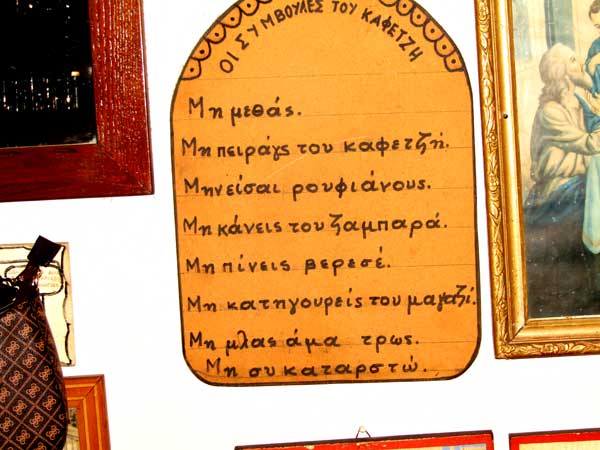 ΟΙ ΣΥΜΒΟΥΛΕΣ ΤΟΥ ΚΑΦΕΤΖΗ
Μη μεθάς.
Μη πειράγς του καφετζή.
Μην είσαι ρουφιάνους.
Μη κάνεις του ζαμπαρά.
Μη πίνεις βερεσέ.
Μη κατηγουρείς του μαγαζί.
Μη μλας άμα τρως.
Μη συ καταρστώ.